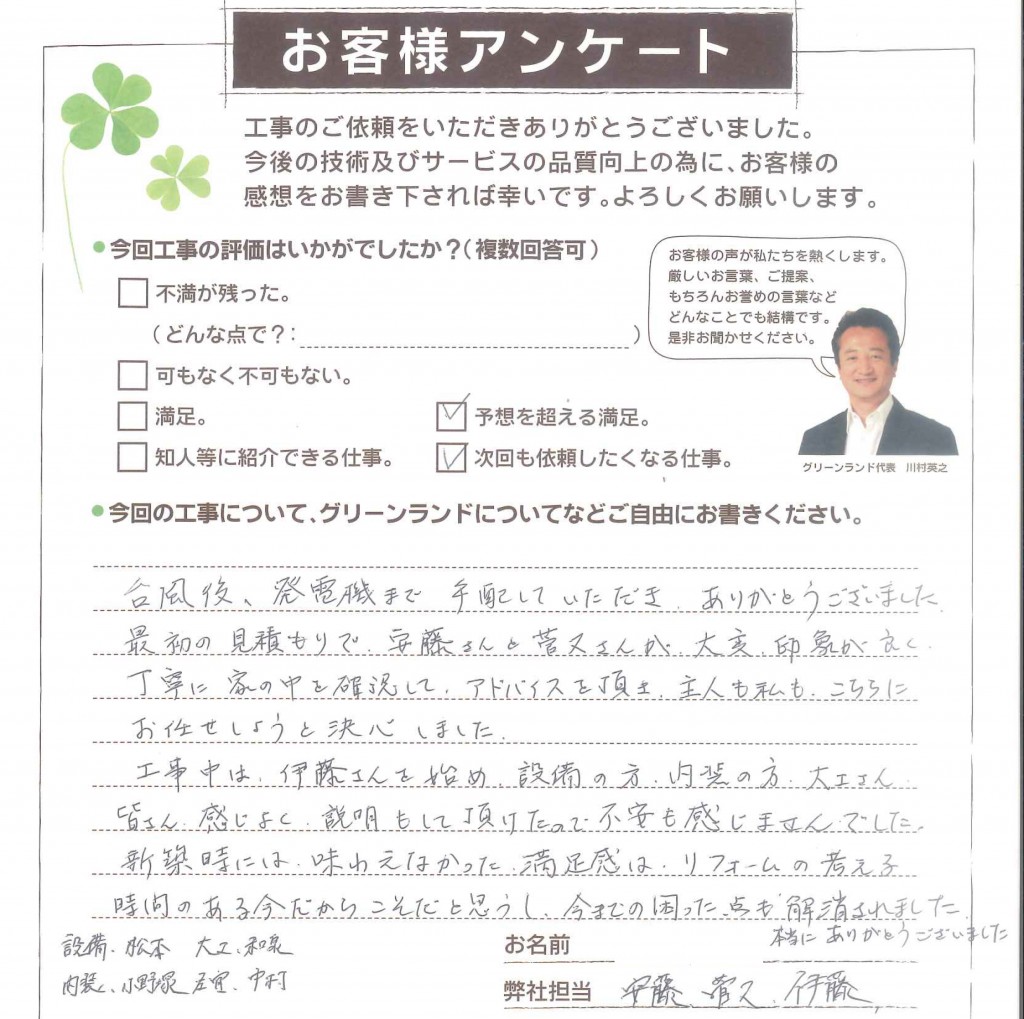 お客様アンケート
工事のご依頼をいただきありがとうございました。
今後の技術及びサービスの品質向上の為に、お客様の
感想をお書き下されば幸いです。よろしくお願いします。
今回工事の評価はいかがでしたか？(複数回答可)
不満が残った。
(どんな点で？: )
可もなく不可もない。
満足。
予想を超える満足。
知人等に紹介できる仕事。
次回も依頼したくなる仕事。
お客様の声が私たちを熱くします。
厳しいお言葉、ご提案、
もちろんお誉めの言葉など
どんなことでも結構です。
是非お聞かせください。
グリーンランド代表 川村英之
今回の工事について、グリーンランドについてなどご自由にお書きください。
台風後、発電機まで手配していただき、ありがとうございました。
最初の見積もりで、安藤さんと菅又さんが、大変、印象が良く、
丁寧に家の中を確認して、アドバイスを頂き、主人も私も、こちらに
お任せしようと決心しました。
工事中は、伊藤さんを始め、設備の方、内装の方、大工さん、
皆さん、感じよく、説明もして頂けたので不安も感じませんでした。
新築時には、味わえなかった、満足感は、リフォームの考える
時間のある今だからこそだと思うし、今までの困った点も解消されました。
本当にありがとうございました
設備、松本 大工、和泉
内装、小野塚 中村
お名前
弊社担当 安藤、菅又、伊藤